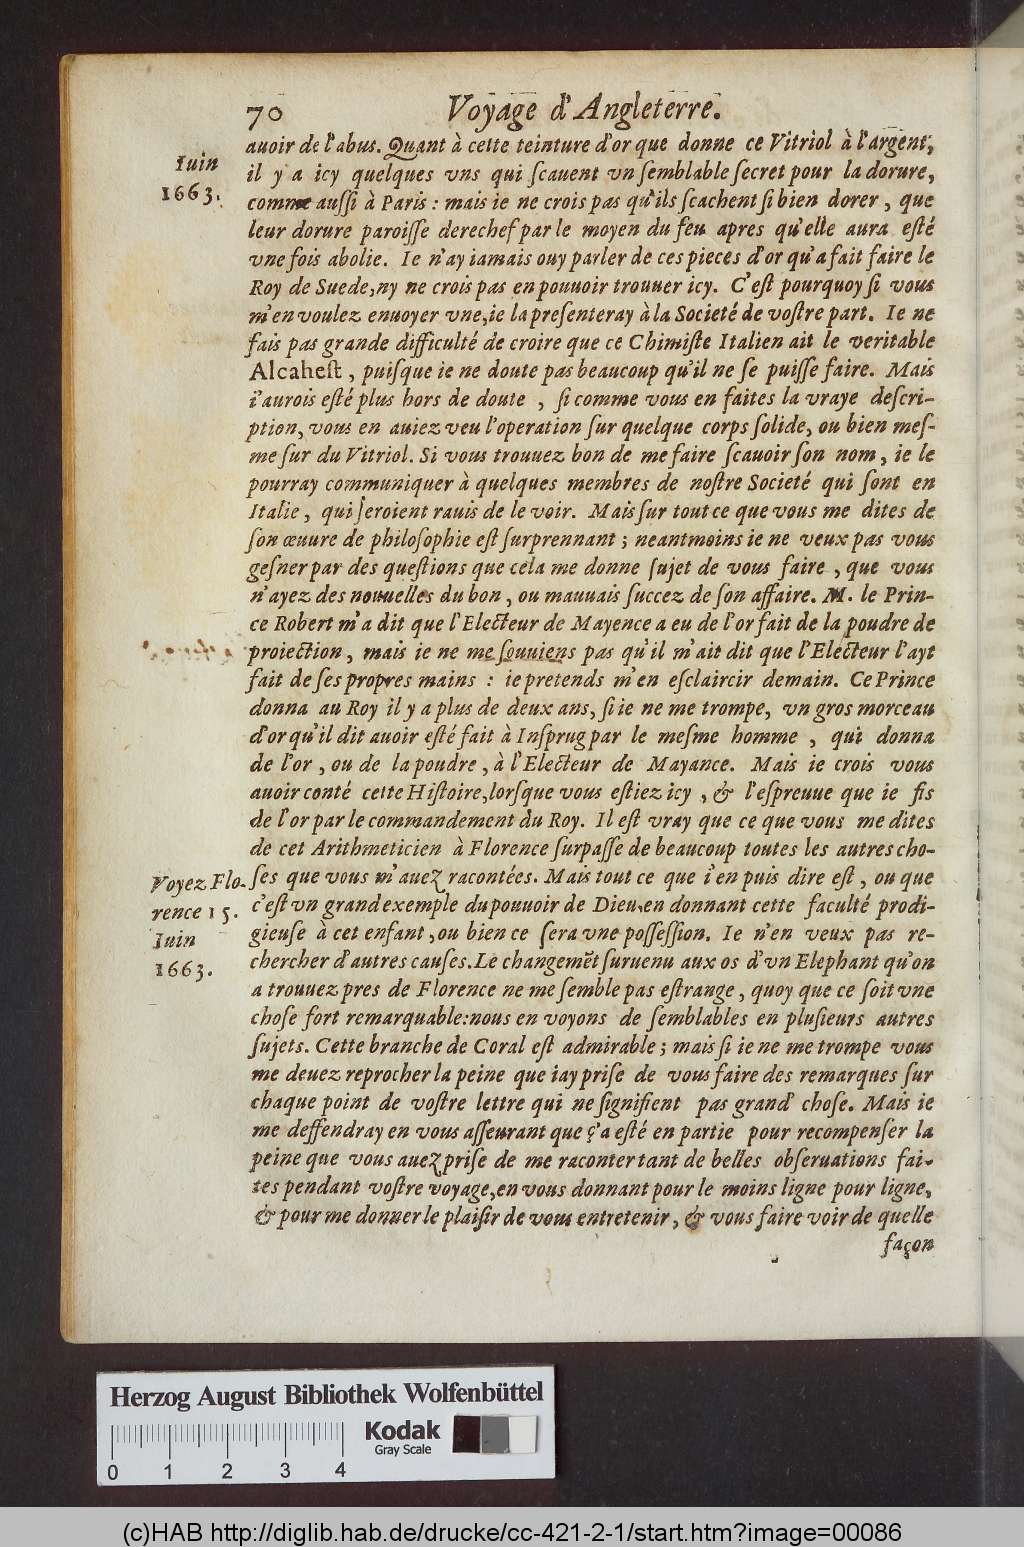 70 Voyage d'Angleterre.
Iuin
1663.
auoir de l'abus. Quant à cette teinture d'or que donne ce Vitriol à l'argent,
il y a icy quelques vns qui ſcauent vn ſemblable ſecret pour la dorure,
comme auſſi à Paris : mais ie ne crois pas qu'ils ſcachent ſi bien dorer, que
leur dorure paroiſſe derechef par le moyen du feu apres qu'elle aura eſté
vne fois abolie. Ie n'ay iamais ouy parler de ces pieces d'or qu'a fait faire le
Roy de Suede, ny ne crois pas en pouuoir trouuer icy. C'eſt pourquoy ſi vous
m'en voulez enuoyer vne, ie la preſenteray à la Societé de voſtre part. Ie ne
fais pas grande difficulté de croire que ce Chimiſte Italien ait le veritable
Alcaheſt, puiſque ie ne doute pas beaucoup qu'il ne ſe puiſſe faire. Mais
i'aurois eſté plus hors de doute , ſi comme vous en faites la vraye deſcri-
ption, vous en auiez veu l'operation ſur quelque corps ſolide, ou bien meſ-
me ſur du Vitriol. Si vous trouuez bon de me faire ſcauoir ſon nom, ie le
pourray communiquer à quelques membres de noſtre Societé qui ſont en
Italie, qui ſeroient rauis de le voir. Mais ſur tout ce que vous me dites de
ſon œuure de philoſophie eſt ſurprennant ; neantmoins ie ne veux pas vous
geſner par des queſtions que cela me donne ſujet de vous faire, que vous
n'ayez des nouuelles du bon, ou mauuais ſuccez de ſon affaire. M. le Prin-
ce Robert m'a dit que l'Electeur de Mayence a eu de l'or fait de la poudre de
proiection, mais ie ne me ſouuiens pas qu'il m'ait dit que l'Electeur l'ayt
fait de ſes propres mains : ie pretends m'en eſclaircir demain. Ce Prince
donna au Roy il y a plus de deux ans, ſi ie ne me trompe, vn gros morceau
d'or qu'il dit auoir eſté fait à Inſprug par le meſme homme , qui donna
de l'or, ou de la poudre, à l'Electeur de Mayance. Mais ie crois vous
auoir conté cette Hiſtoire, lorſque vous eſtiez icy, & l'eſpreuue que ie fis
de l'or par le commandement du Roy. Il eſt vray que ce que vous me dites
de cet Arithmeticien à Florence ſurpaſſe de beaucoup toutes les autres cho-
Voyez Flo-
rence 15.
Iuin
1663.
ſes que vous m'auez racontées. Mais tout ce que i'en puis dire eſt, ou que
c'eſt vn grand exemple du pouuoir de Dieu, en donnant cette faculté prodi-
gieuſe à cet enfant, ou bien ce ſera vne poſſeſſion. Ie n'en veux pas re-
chercher d'autres cauſes. Le changemẽt ſuruenu aux os d'vn Elephant qu'on
a trouuez pres de Florence ne me ſemble pas eſtrange, quoy que ce ſoit vne
choſe fort remarquable: nous en voyons de ſemblables en pluſieurs autres
ſujets. Cette branche de Coral eſt admirable ; mais ſi ie ne me trompe vous
me deuez reprocher la peine que iay priſe de vous faire des remarques ſur
chaque point de voſtre lettre qui ne ſignifient pas grand' choſe. Mais ie
me deffendray en vous aſſeurant que ç'a eſté en partie pour recompenſer la
peine que vous auez priſe de me raconter tant de belles obſeruations fai-
tes pendant voſtre voyage, en vous donnant pour le moins ligne pour ligne,
& pour me donner le plaiſir de vous entretenir, & vous faire voir de quelle
façon
Herzog August Bibliothek Wolfenbüttel
Kodak
Gray Scale
0 1 2 3 4
(c)HAB http://diglib.hab.de/drucke/cc-421-2-1/start.htm?image=00086